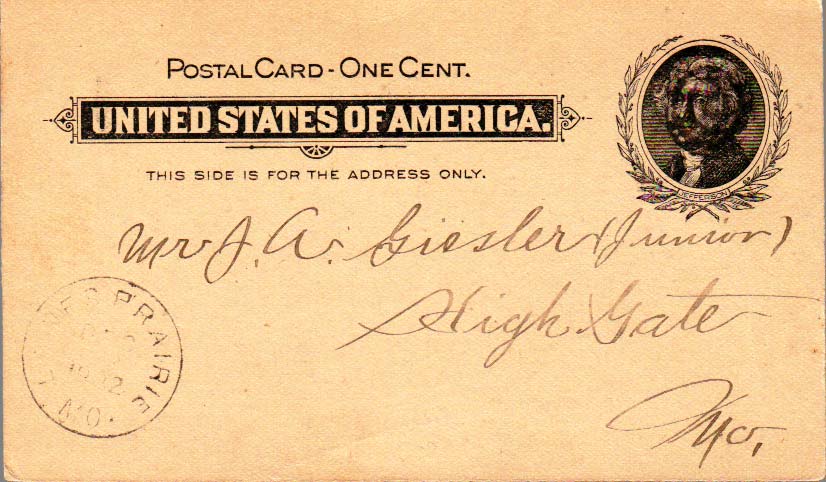 POSTAL CARD - ONE CENT.
UNITED STATES OF AMERICA.
THIS SIDE IS FOR THE ADDRESS ONLY.
JEFFERSON
Mr J. A. Giesler (Junior)
High Gate
Mo.
PRAIRIE
MO.